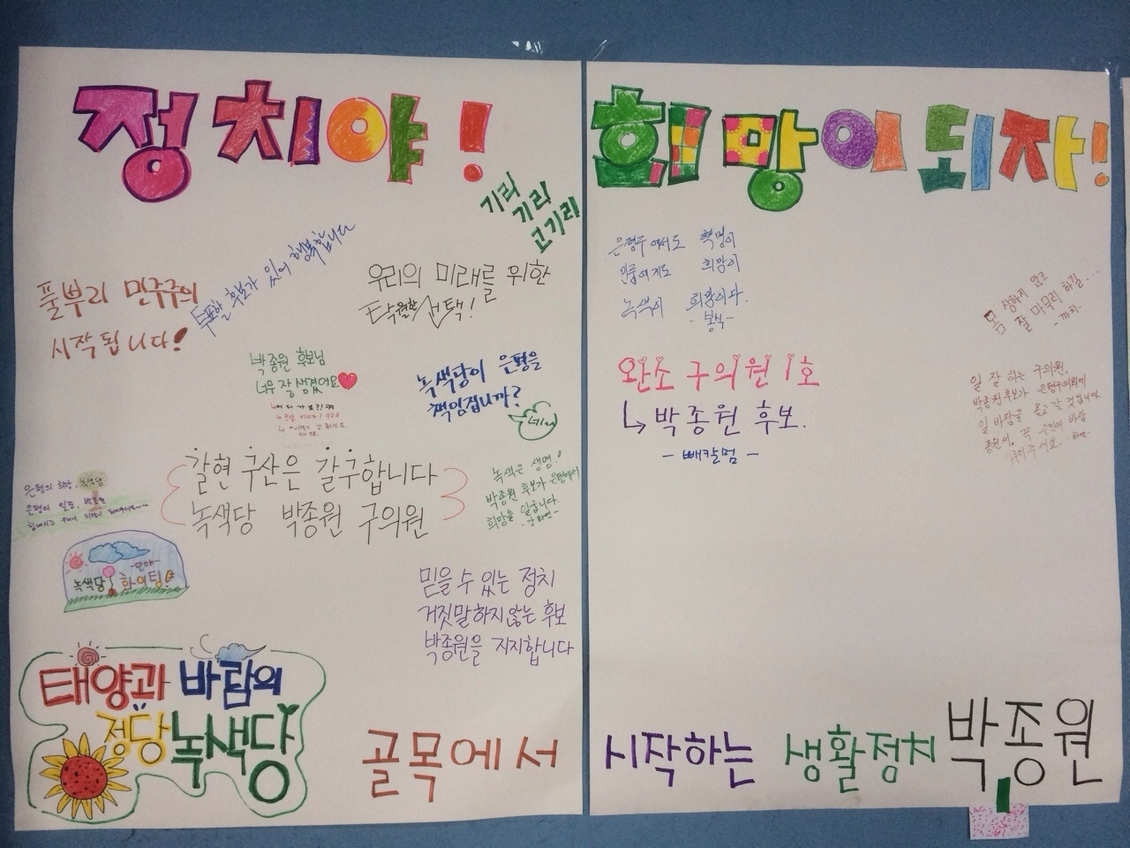 정치야!
희망이 되자!
기리
기리
고기리
투표할 후보가 있어 행복합니다
풀뿌리 민주주의
시작됩니다!
우리의 미래를 위한
탁월한 선택!
박종원 후보님
너무 잘 생겼어요
녹색당이 은평을
책임집니까?
네
갈현 구산은 갈구합니다
녹색당 박종원 구의원
녹색은 생명!
박종원 후보가 은평에서
희망을 일굽니다.
은평의 희망, 녹색당
은평의 일꾼, 박종원
녹색당 화이팅!
믿을 수 있는 정치
거짓말하지않는 후보
박종원을 지지합니다
태양과 바람의
정당 녹색당
골목에서
은평구에서도 혁명이
희망이
녹색이 희망이다.
완소 구의원 1호
↳ 박종원 후보.
- 빼칼멈 -
몸 상하지 않고
잘 마무리 하길...
일 잘 하는 구의원,
박종원 후보가 은평구의회에
일 바람을 몰고 갈 것입니다.
시작하는 생활정치 박종원